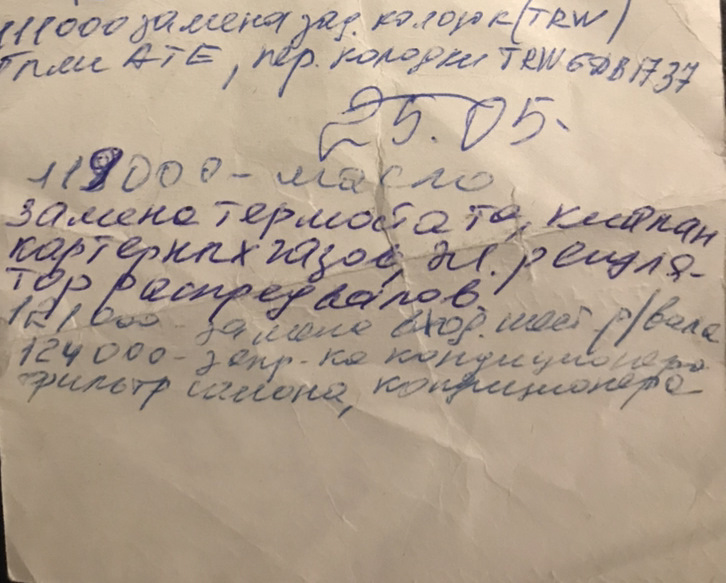 111000 замена зад. колодк (TRW)
ATE, пер. колодки TRW GDB1737
25.05.
119000 - масло
замена термостата, клапан
картерных газов, эл. регуля-
тор распредвалов
121000 - замена вход. шест. р/вала
124000 - запр-ка кондиционера
фильтр салона, кондиционера